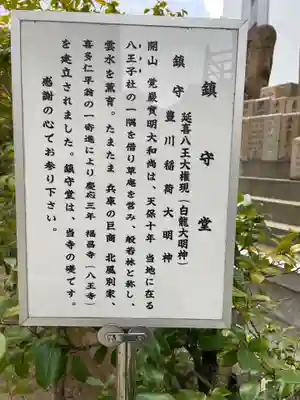 鎮守堂
延喜八王大権現（白龍大明神）
鎮守 豊川稲荷大明神
開山 覚巌實明大和尚は、天保十年 当地に在る
八王子社の一隅を借り草庵を営み、般若林と称し、
雲水を薫育。たまたま 兵庫の巨商 北風別家、
喜多仁平翁の一寄進により 慶応三年 福昌寺（八王寺）
を建立されました。鎮守堂は、当寺の礎です。
感謝の心でお参り下さい。